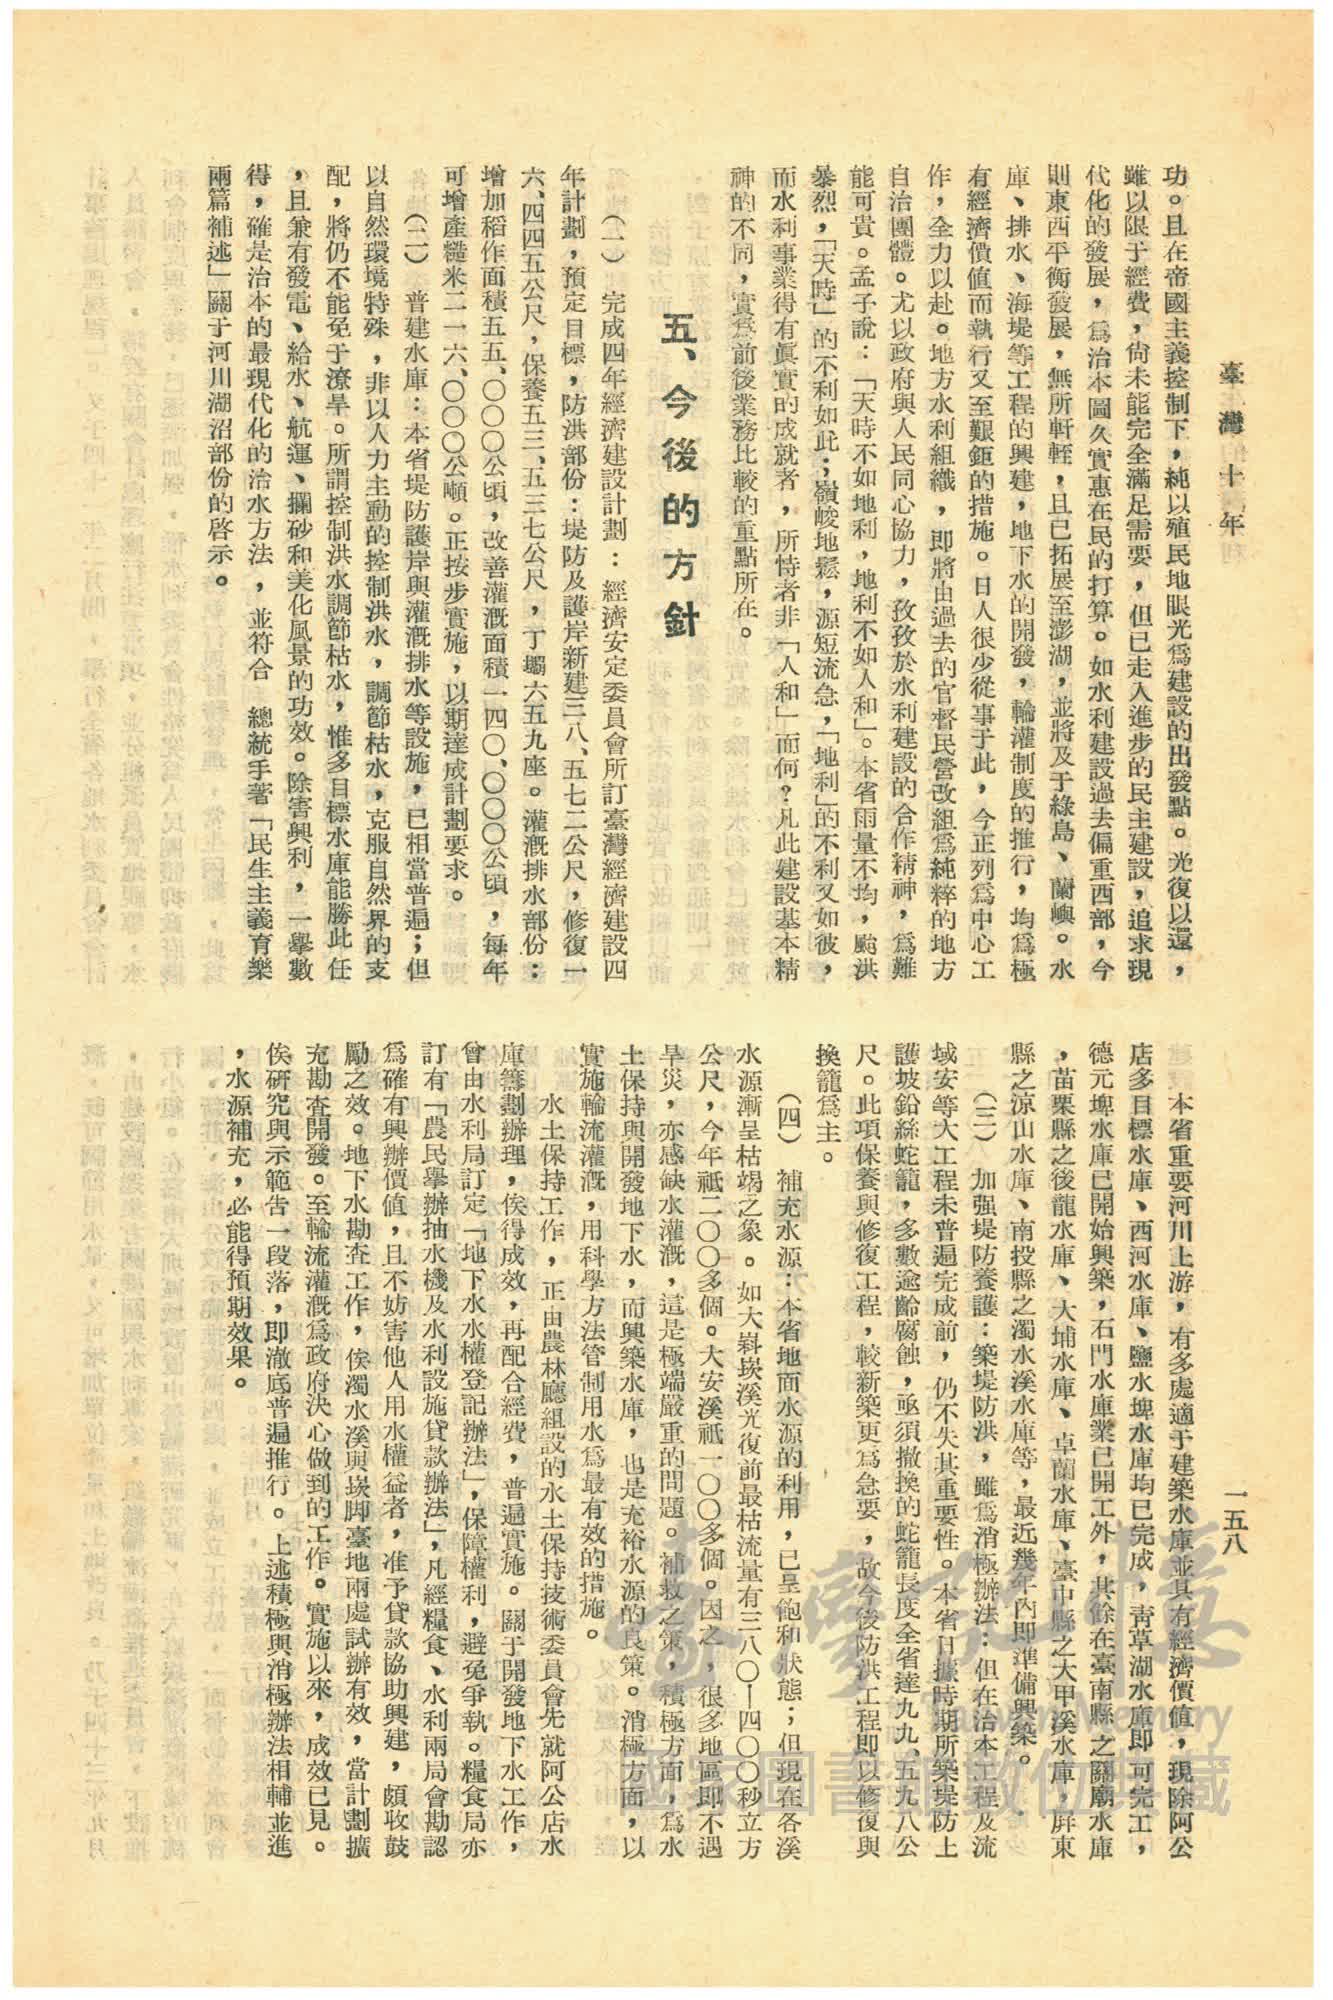 臺灣十年
一五八
功。且在帝國主義控制下，純以殖民地眼光爲建設的出發點。光復以還，
雖以限于經費，尙未能完全滿足需要，但已走入進步的民主建設，追求現
代化的發展，爲治本圖久實惠在民的打算。如水利建設過去偏重西部，今
則東西平衡發展，無所軒輊，且已拓展至澎湖，並將及于綠島、蘭嶼。水
庫、排水、海堤等工程的興建，地下水的開發，輪灌制度的推行，均爲極
有經濟價值而執行又至艱鉅的措施。日人很少從事于此，今正列爲中心工
作，全力以赴。地方水利組織，即將由過去的官督民營改組爲純粹的地方
自治團體。尤以政府與人民同心協力，孜孜於水利建設的合作精神，爲難
能可貴。孟子說：「天時不如地利，地利不如人和」。本省雨量不均，颱洪
暴烈，「天時」的不利如此；嶺峻地鬆，源短流急，「地利」的不利又如彼，
而水利事業得有眞實的成就者，所恃者非「人和」而何？凡此建設基本精
神的不同，實爲前後業務比較的重點所在。
五、今後的方針
（一）　完成四年經濟建設計劃：經濟安定委員會所訂臺灣經濟建設四
年計劃，預定目標，防洪部份：堤防及護岸新建三八、五七二公尺，修復一
六、四四五公尺，保養五三、五三七公尺，丁壩六五九座。灌漑排水部份：
增加稻作面積五五、〇〇〇公頃，改善灌漑面積一四〇、〇〇〇公頃，每年
可增產糙米二一六、〇〇〇公噸。正按步實施，以期達成計劃要求。
（二）　普建水庫：本省堤防護岸與灌漑排水等設施，已相當普遍；但
以自然環境特殊，非以人力主動的控制洪水，調節枯水，克服自然界的支
配，將仍不能免于潦旱。所謂控制洪水調節枯水，惟多目標水庫能勝此任
，且兼有發電、給水、航運、攔砂和美化風景的功效。除害興利，一舉數
得，確是治本的最現代化的治水方法，並符合　總統手著「民生主義育樂
兩篇補述」關于河川湖沼部份的啓示。
本省重要河川上游，有多處適于建築水庫並具有經濟價值，現除阿公
店多目標水庫、西河水庫、鹽水埤水庫均已完成，靑草湖水庫即可完工，
德元埤水庫已開始興築，石門水庫業已開工外，其餘在臺南縣之關廟水庫
，苗栗縣之後龍水庫、大埔水庫、卓蘭水庫、臺中縣之大甲溪水庫，屛東
縣之涼山水庫、南投縣之濁水溪水庫等，最近幾年內即準備興築。
（三）　加强堤防養護：築堤防洪，雖爲消極辦法：但在治本工程及流
域安等大工程未普遍完成前，仍不失其重要性。本省日據時期所築堤防上
護坡鉛絲蛇籠，多數逾齡腐蝕，亟須撤換的蛇籠長度全省達九九、五九八公
尺。此項保養與修復工程，較新築更爲急要，故今後防洪工程即以修復與
換籠爲主。
（四）　補充水源：本省地面水源的利用，已呈飽和狀態；但現在各溪
水源漸呈枯竭之象。如大嵙崁溪光復前最枯流量有三八〇—四〇〇秒立方
公尺，今年祇二〇〇多個。大安溪祇一〇〇多個。因之，很多地區即不遇
旱災，亦感缺水灌漑，這是極端嚴重的問題。補救之策，積極方面，爲水
土保持與開發地下水，而興築水庫，也是充裕水源的良策。消極方面，以
實施輪流灌漑，用科學方法管制用水爲最有效的措施。
水土保持工作，正由農林廳組設的水土保持技術委員會先就阿公店水
庫籌劃辦理，俟得成效，再配合經費，普遍實施。關于開發地下水工作，
曾由水利局訂定「地下水水權登記辦法」，保障權利，避免爭執。糧食局亦
訂有「農民舉辦抽水機及水利設施貸款辦法」，凡經糧食、水利兩局會勘認
爲確有興辦價值，且不妨害他人用水權益者，准予貸款協助興建，頗收鼓
勵之效。地下水勘查工作，俟濁水溪與崁脚臺地兩處試辦有效，當計劃擴
充勘查開發。至輪流灌漑爲政府決心做到的工作。實施以來，成效已見。
俟硏究與示範告一段落，即澈底普遍推行。上述積極與消極辦法相輔並進
，水源補充，必能得預期效果。
臺灣記憶
Taiwan Memory
國家圖書館數位典藏